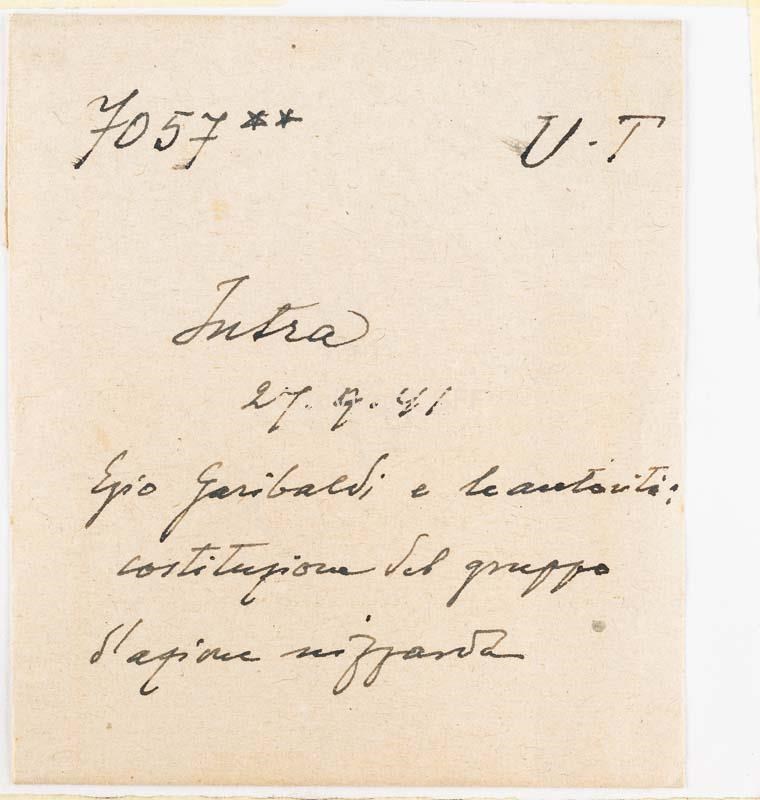 7057** U.T
Intra
27. 9. 41
Egio Garibaldi e le autorità:
costituzione del gruppo
d'azione nizzarda